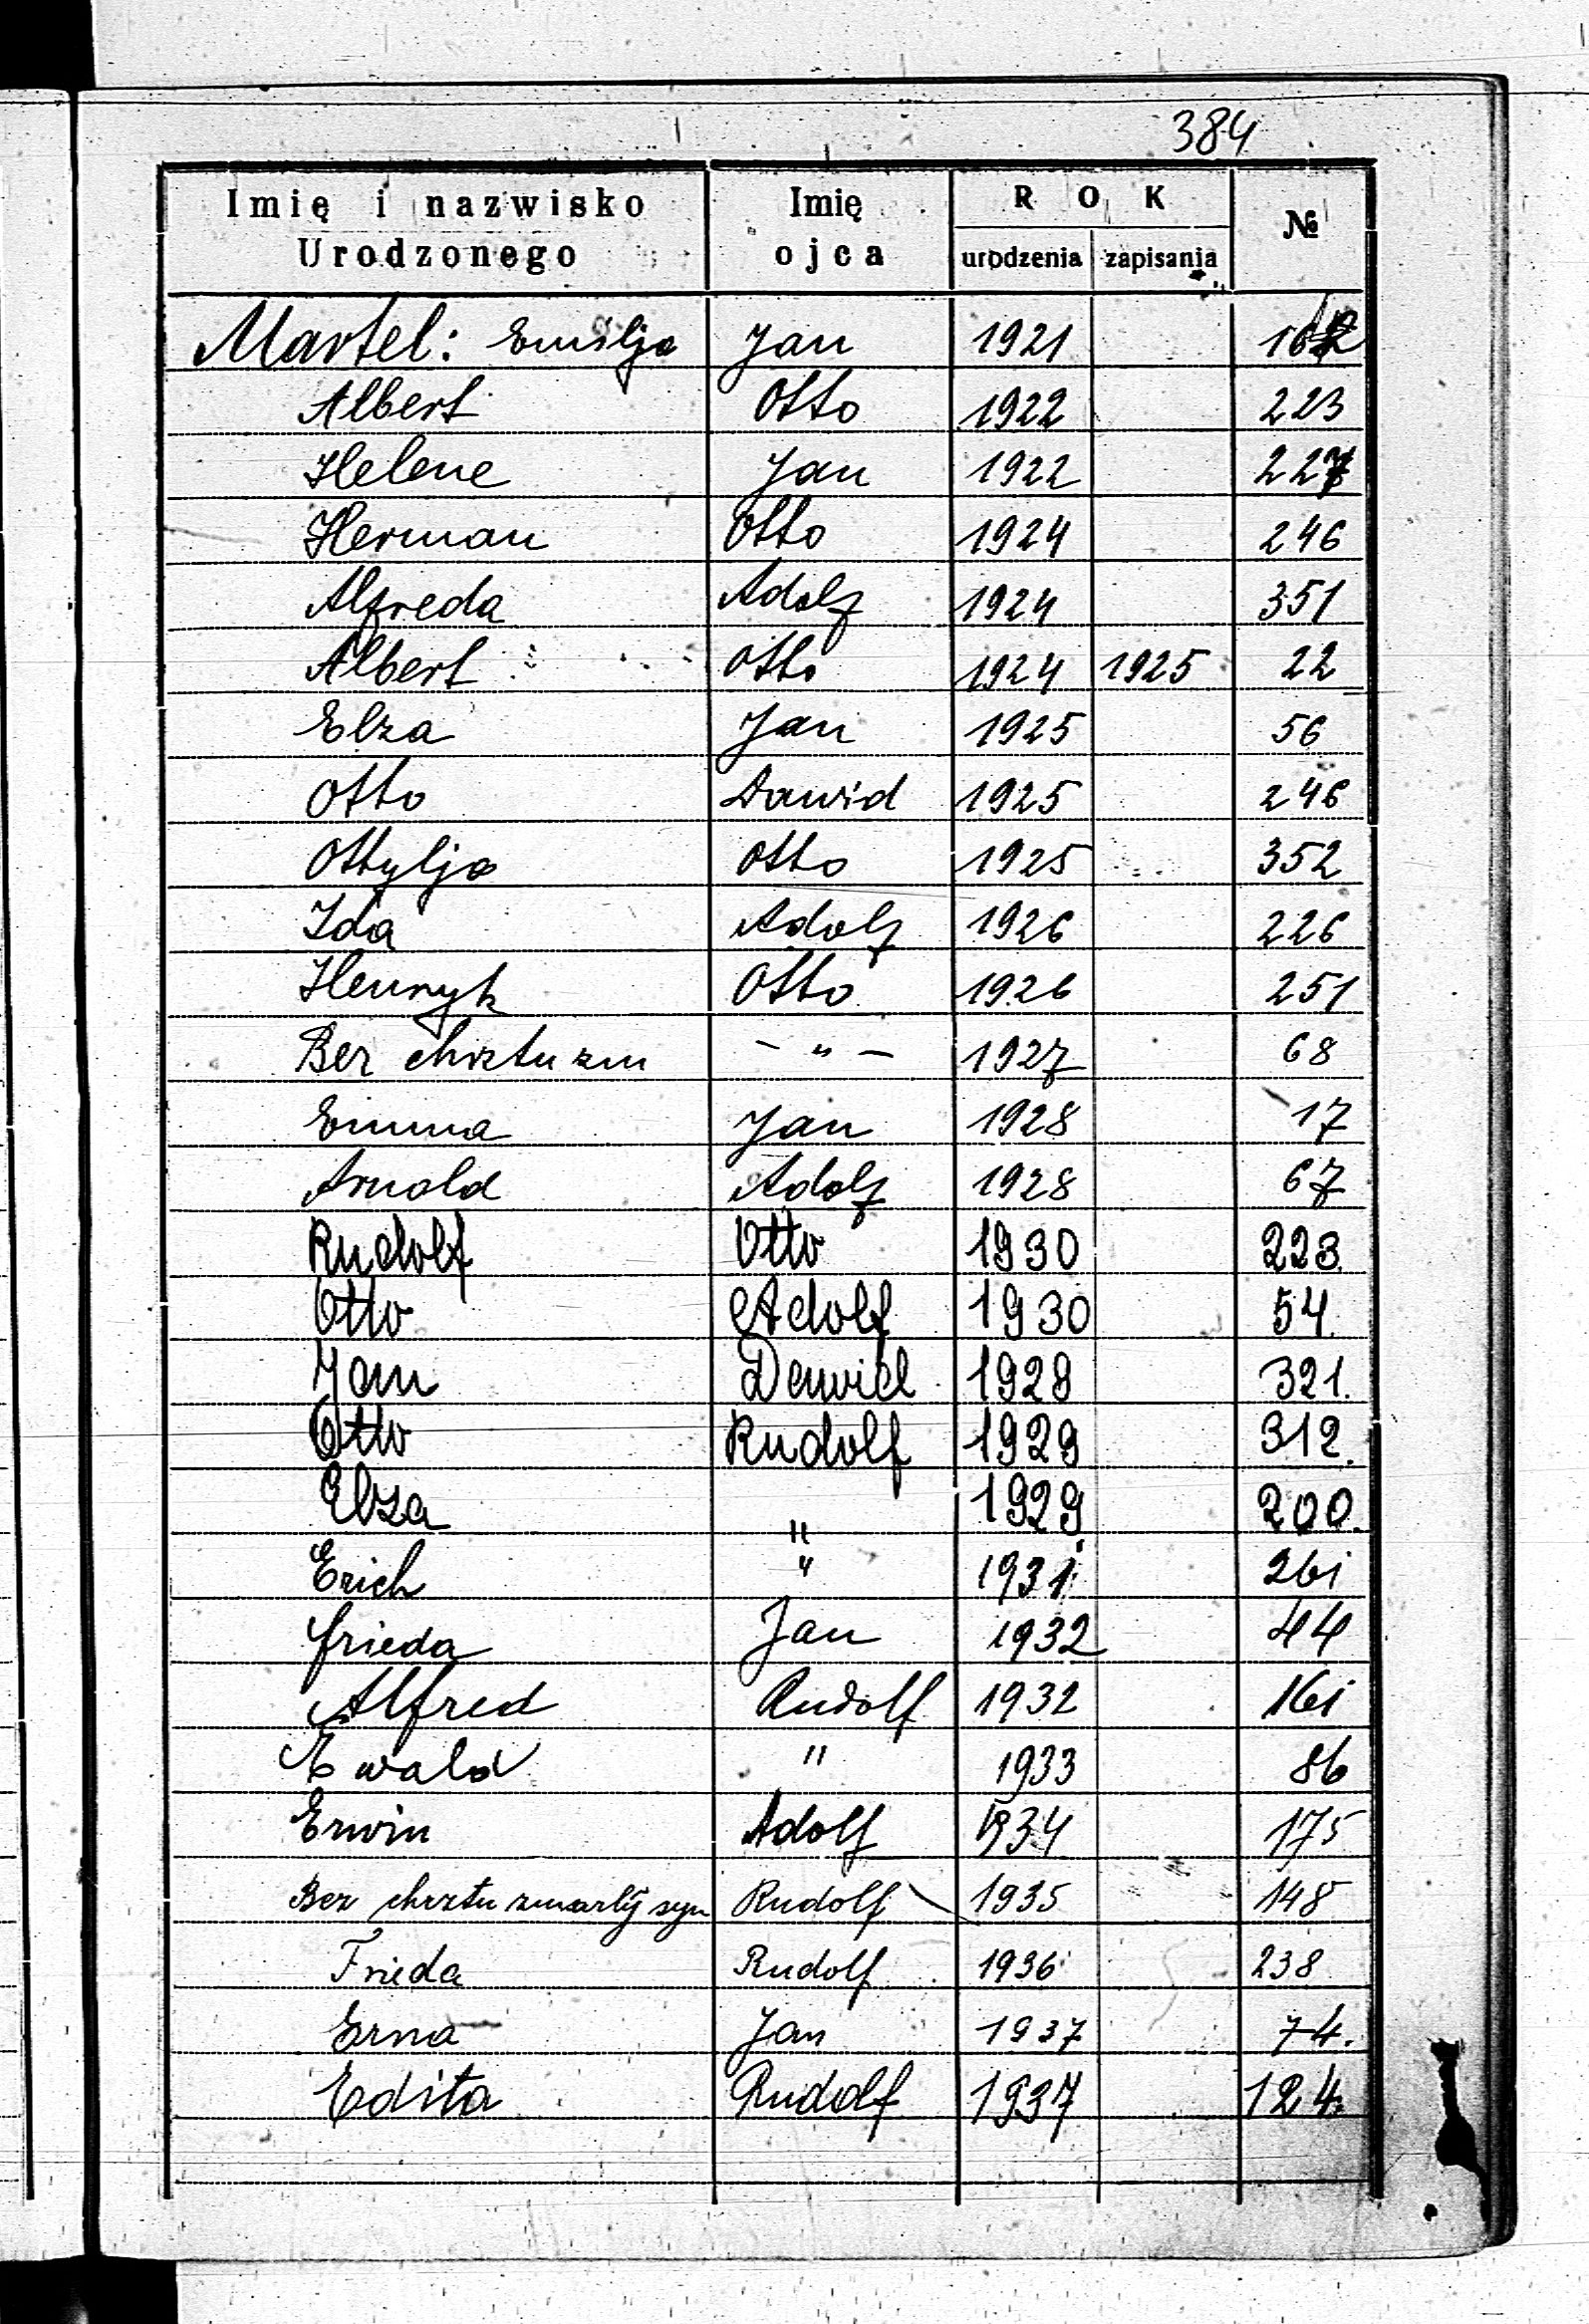 384
Imię i nazwisko Urodzonego | Imię ojca | ROK urodzenia | zapisania | №
Martel: Emilja Jan 1921
Albert Otto 1922 223
Helene Jan 1922 227
Herman Otto 1924 246
Alfreda Adolf 1924 351
Albert Otto 1924 1925 22
Elza Jan 1925 56
Otto Dawid 1925 246
Ottylja Otto 1925 352
Ida Adolf 1926 226
Henryk Otto 1926 251
Bez chrztu zm — " — 1927 68
Emma Jan 1928 17
Arnold Adolf 1928 67
Rudolf Otto 1930 223
Otto Adolf 1930 54
Jan Dawid 1928 321.
Otto Rudolf 1929 312.
Elza " 1929 200.
Erich " 1931 261
Frieda Jan 1932 44
Alfred Rudolf 1932 161
Ewald " 1933 86
Erwin Adolf 1934 175
Bez chrztu zmarłý syn Rudolf 1935 148
Frieda Rudolf 1936 238
Erna Jan 1937 74.
Edita Rudolf 1937 124.